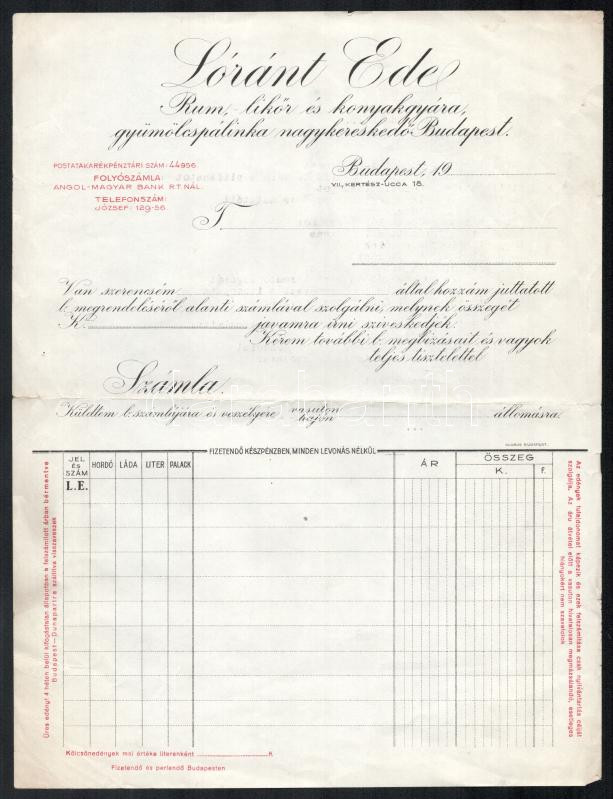 Lóránt Ede
Rum,- likőr és konyakgyára,
gyümölcspálinka nagykereskedő Budapest.
POSTATAKARÉKPÉNZTÁRI SZÁM: 44956.
FOLYÓSZÁMLA:
ANGOL-MAGYAR BANK RT. NÁL.
TELEFONSZÁM:
JÓZSEF: 129-56.
Budapest, 19
VII., KERTÉSZ-UCCA 18.
T
Van szerencsém általhozzám juttatott
b. megrendeléséről alanti számlával szolgálni, melynek összegét
K. javamra irni sziveskedjék.
Kérem további b. megbizásait és vagyok
teljes tisztelettel
Számla.
Küldtem b. számlájára és veszélyére vasuton állomásra.
hajón
FIZETENDŐ KÉSZPÉNZBEN, MINDEN LEVONÁS NÉLKÜL
JEL ÉS SZÁM HORDÓ LÁDA LITER PALACK ÁR ÖSSZEG
K. F.
L.E.
Üres edényt 4 héten belül kifogástalan állapotban a felszámitott árban bérmentve
Budapest—Dunapartra szállitva visszaveszek
Az edények tulajdonomat képezik és ezek felszámitása csak nyilvántartás célját
szolgálja. Az áru átvétel előtt a vasuton hivatalosan megmázsálandó, esetleges
hiányokért nem szavatolok
Kölcsönedények mai értéke literenként K
Fizetendő és perlendő Budapesten